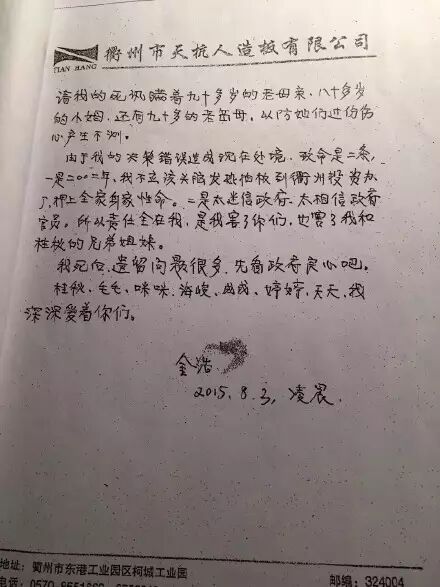 TIAN HANG
衢州市天杭人造板有限公司
请我的死讯瞒着九十多岁的老母亲,八十多岁
的小姆,还有九十多的老岳母。以防她们过份伤
心产生不测。
由于我的决策错误造成现在处境,致命是二条,
一是二00二年,我不应该关阀发热怕板到衢州投资办
厂,押上全家身家性命。二是太迷信政府,太相信政府
官员。所以责任全在我,是我害了你们,也害了我和
桂秋的兄弟姐妹。
我死后,遗留问题很多,先看政府良心吧。
桂秋、毛毛、咪咪、海峻、婷婷、天天,我
深深爱着你们。
金浩
2015.8.3,凌晨.
地址:衢州市东港工业园区柯城工业园
电话:0570-
邮编:324004